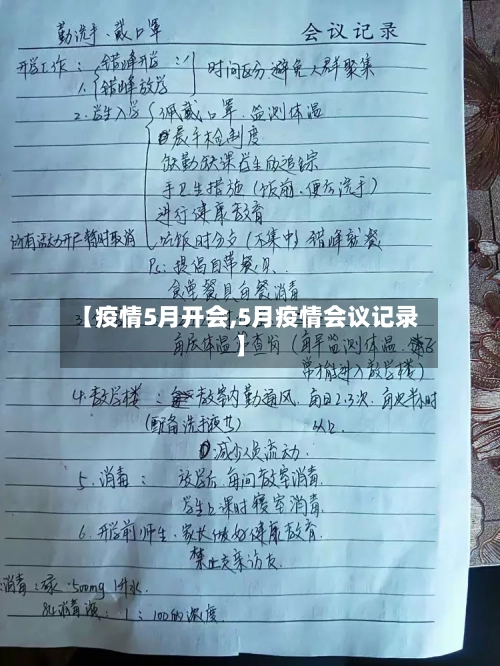 勤洗手、戴口罩 会议记录
开学工作：1. 错峰开学
错峰放学
时间区分 避免人群聚集
2. 学生入学 佩戴口罩 监测体温
晨午检制度
缺勤缺课学生的追踪
手卫生措施（饭前、便后洗手）
进行健康教育
所有活动开户暂时取消 吃饭时分台（不集中）错峰就餐
Ps: 提倡自带餐具
食堂餐具白餐消毒
【疫情5月开会,5月疫情会议记录
】
3
体温 查岗（每早监测体温
常才能进入教学楼）
4. 教学楼： 教室内勤通风 每日2.3次 每次半小时
（配备洗手液去） 以上
减少人员流动
5. 消毒： 放学后 每间教室消毒
学生上课时寝室消毒
6. 开学前师生、家长做好健康教育
禁止走亲访友
消毒：碌 500mg 1升水
84消毒液：1：100的浓度